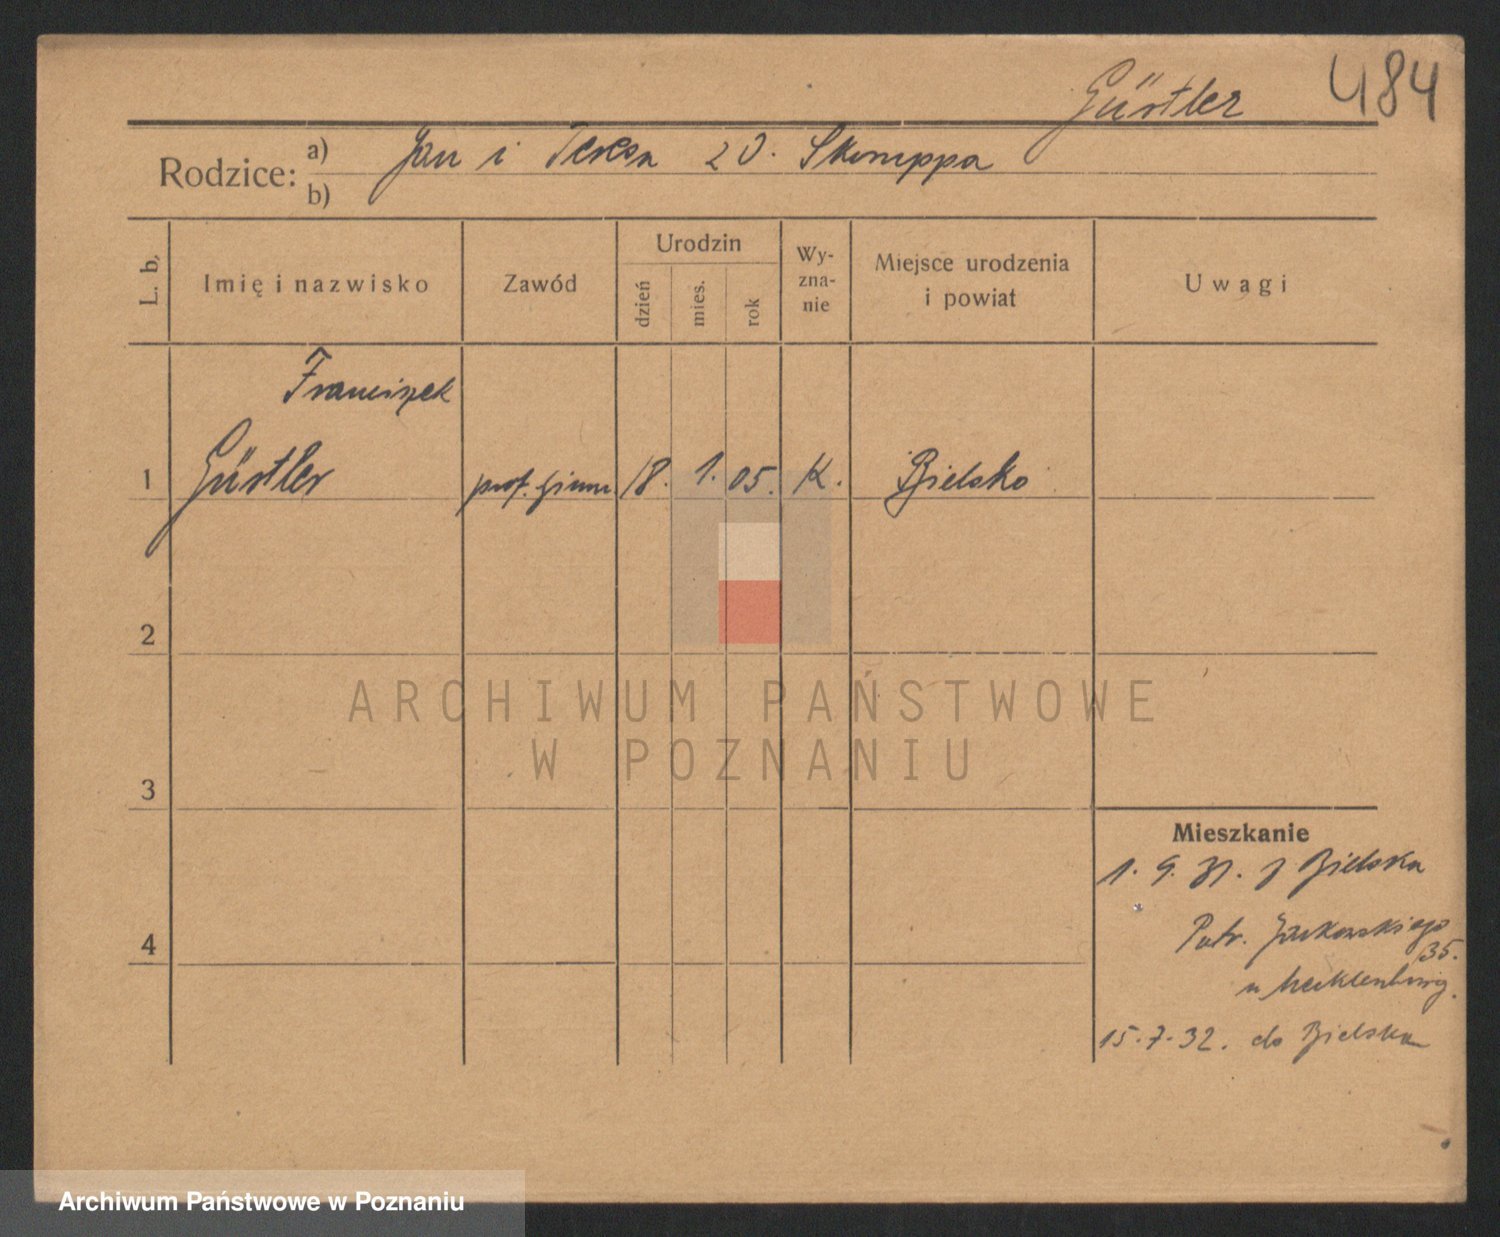 Güstler 484
Rodzice: a) Jan i Teresa z d. Skoruppa
b)
L. b. Imię i nazwisko Zawód Urodzin dzień mies. rok Wy-zna-nie Miejsce urodzenia i powiat Uwagi
Franciszek
1 Güstler prof. gimn. 18. 1. 05. K. Bielsko
2
ARCHIWUM PAŃSTWOWE
W POZNANIU
3
Mieszkanie
1. 9. 31. z Bielska
4 Patr. Jackowskiego
35.
u Mecklenburg.
15.7.32. do Bielska
Archiwum Państwowe w Poznaniu